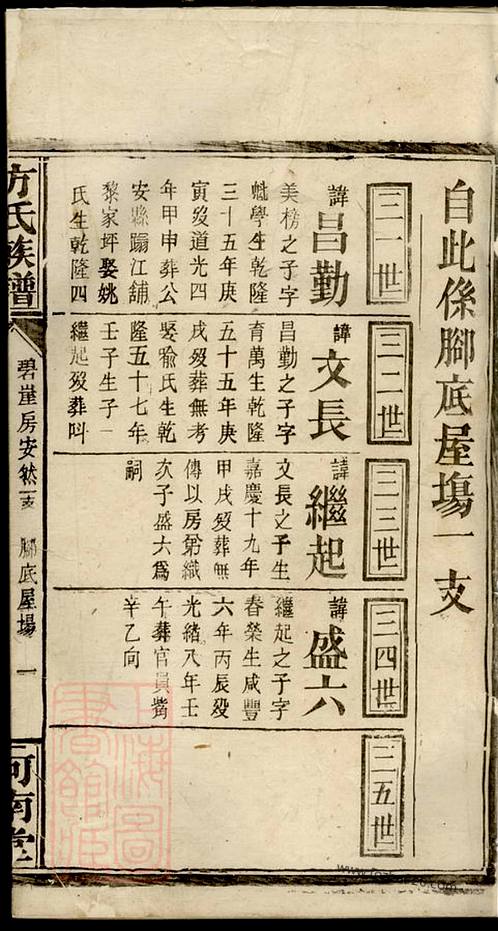 自此係腳底屋塲一支
三一世
諱昌勤
美榜之子字
學生乾隆
三十五年庚
寅歿道光四
年甲申葬公
安縣蹋江舖
黎家坪娶姚
氏生乾隆四
三二世
諱文長
昌勤之子字
育萬生乾隆
五十五年庚
戌歿葬無考
娶龝氏生乾
隆五十七年
壬子生子一
繼起歿葬呌
三三世
諱繼起
文長之子生
嘉慶十九年
甲戌歿葬無
傳以房弟繼
次子盛六爲
嗣
三四世
諱盛六
繼起之子字
春榮生咸豐
六年丙辰歿
光緒八年壬
午葬官員嘴
辛乙向
三五世
方氏族譜
碧崖房安然一支
腳底屋塲
一
河南堂
上海圖書館藏